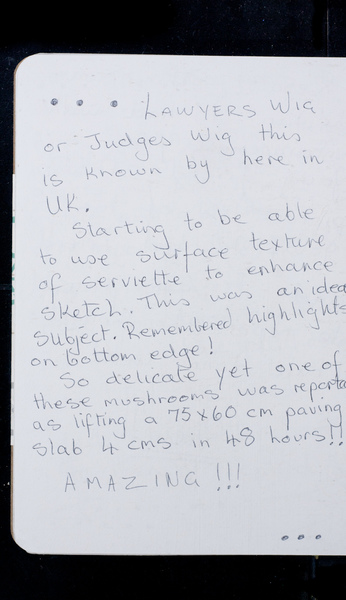 ... LAWYERS WIG
or Judges Wig this
is known by here in
UK.
Starting to be able
to use surface texture
of serviette to enhance
sketch. This was an idea
subject. Remembered highlights
on bottom edge!
So delicate yet one of
these mushrooms was reporte
as lifting a 75x60 cm paving
slab 4 cms in 48 hours!!
AMAZING!!!
...